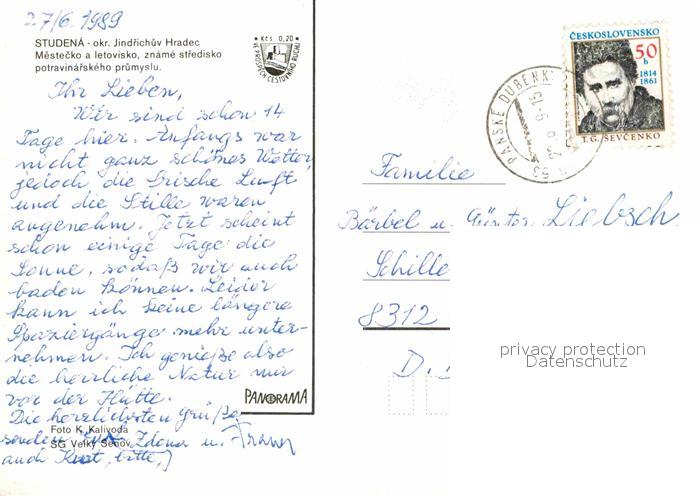 27/6. 1989
STUDENÁ - okr. Jindřichův Hradec
Městečko a letovisko, známé středisko
potravinářského průmyslu.
Kčs 0,20
VE PROSPĚCH CESTOVNÍHO RUCHU
Ihr Lieben,
Wir sind schon 14
Tage hier. Anfangs war
nicht ganz schönes Wetter,
jedoch die frische Luft
und die Stille waren
angenehm. Jetzt scheint
schon einige Tage die
Sonne, sodaß wir auch
baden können. Leider
kann ich keine längere
Spaziergänge mehr unter-
nehmen. Ich genieße also
die herrliche Natur nur
vor der Hütte.
Die herzlichsten Grüße
senden Zdena u. Franz
auch
Foto K. Kalivoda
SG Velký Šenov
PANORAMA
ČESKOSLOVENSKO
50
h
1814
1861
T.G. ŠEVČENKO
PANSKÉ DUBENKY
Familie
Bärbel u. Günter Liebsch
Schille
8312
D.
privacy protection
Datenschutz